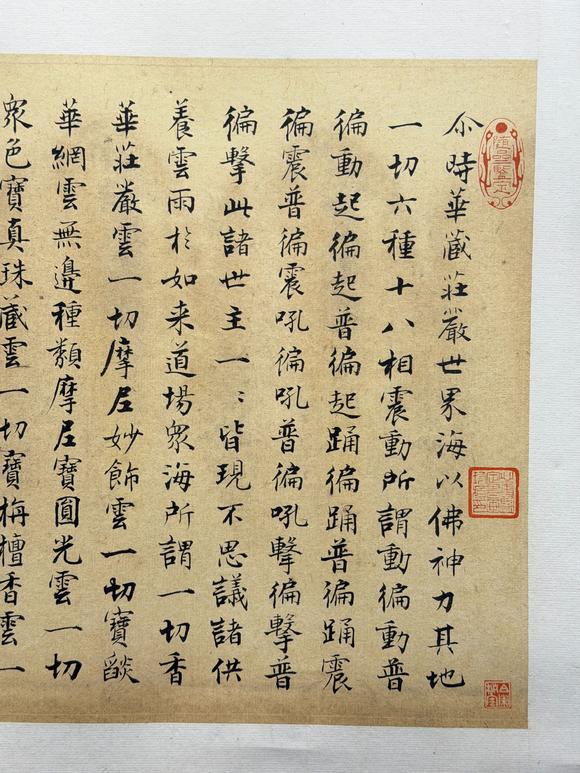 尒時華蔵莊嚴世界海以佛神力其地
一切六種十八相震動所謂動徧動普
徧動起徧起普徧起踊徧踊普徧踊震
徧震普徧震吼徧吼普徧吼擊徧擊普
徧擊此諸世主一〻皆現不思議諸供
養雲雨扵如来道場衆海所謂一切香
華莊嚴雲一切摩尼妙飾雲一切寶燄
華網雲無邊種類摩尼寶圓光雲一切
衆色寶真珠蔵雲一切寶栴檀香雲一